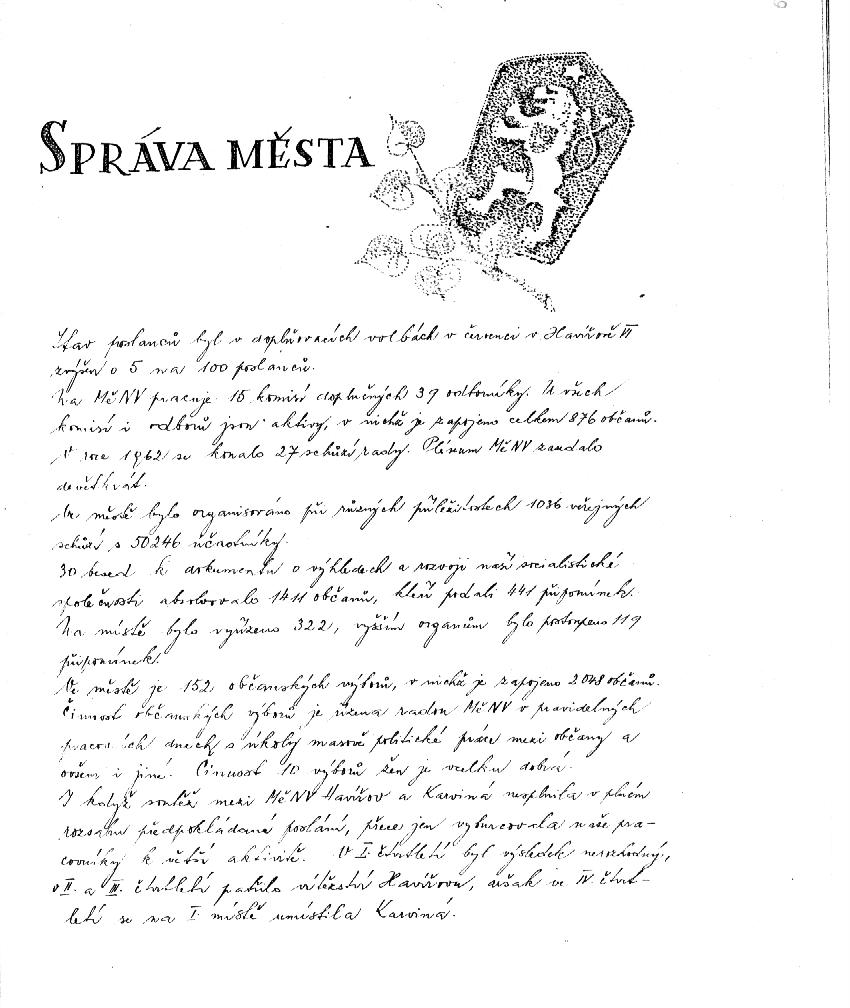 SPRÁVA MĚSTA
Stav poslanců byl v doplňovacích volbách v červenci v Havířově VI
zvýšen o 5 na 100 poslanců.
Na MěNV pracuje 15 komisí doplněných 39 odborníky. U všech
komisí i odborů jsou aktivy, v nichž je zapojeno celkem 876 občanů.
V roce 1962 se konalo 27 schůzí rady. Plénum MěNV zasedalo
devětkrát.
Ve městě bylo organisováno při různých příležitostech 1036 veřejných
schůzí s 50246 účastníky.
30 besed k dokumentu o výhledech a rozvoji naší socialistické
společnosti absolvovalo 1411 občanů, kteří podali 441 připomínek.
Na místě bylo vyřízeno 322, vyšším orgánům bylo postoupeno 119
připomínek.
Ve městě je 152 občanských výborů, v nichž je zapojeno 2048 občanů.
Činnost občanských výborů je řízena radou MěNV v pravidelných
pracovních dnech s úkoly masově politické práce mezi občany a
ovšem i jiné. Činnost 10 výborů žen je vcelku dobrá.
I když soutěž mezi MěNV Havířov a Karviná nesplnila v plném
rozsahu předpokládané poslání, přece jen vyburcovala naše pra-
covníky k větší aktivitě. V I. čtvrtletí byl výsledek nerozhodný,
v II. a III. čtvrtletí patřilo vítězství Havířovu, avšak ve IV. čtvrt-
letí se na I. místě umístila Karviná.